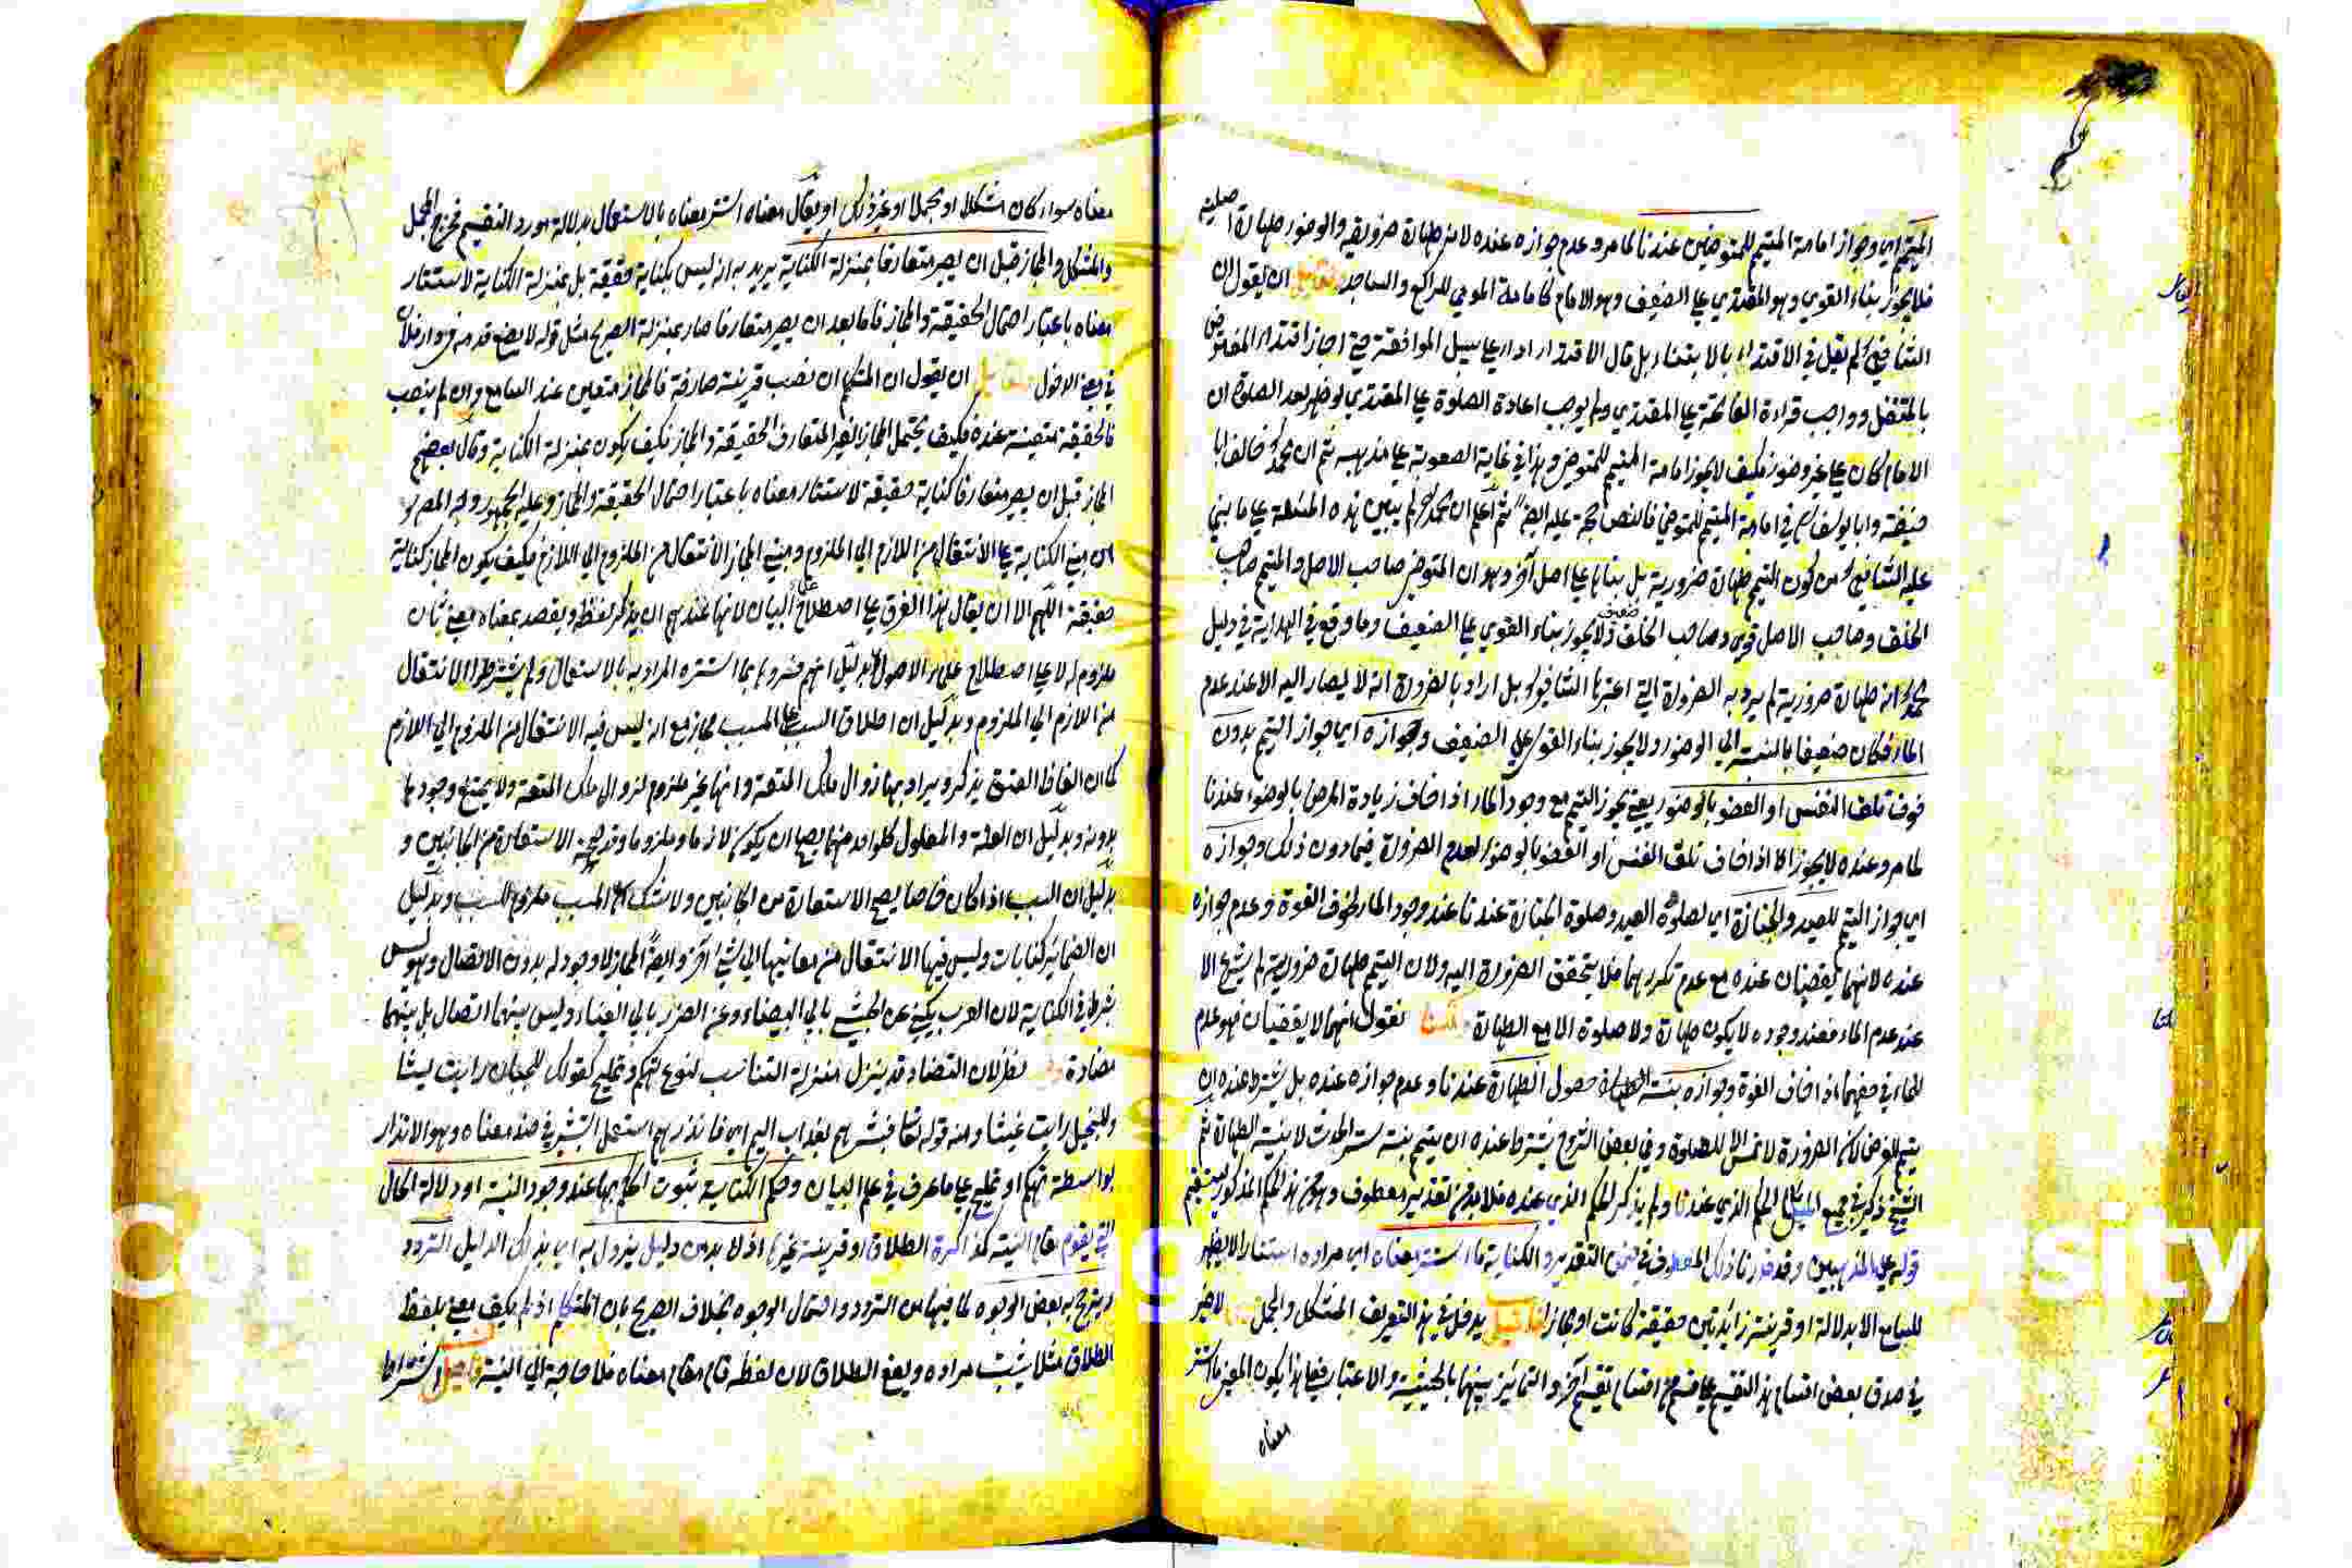 المتيمم اي وجواز امامة المتيمم للمتوضئين عندنا لما مر وعدم جوازه عنده لانه طهارة ضرورية والوضوء طهارة اصلية
فلا يجوز بناء القوي وهو المقتدي على الضعيف وهو الامام كامامة المومي للراكع والساجد ان يقول ان
الشافعي لم يقل في الاقتداء بالابتناء بل قال الاقتداء اداء على سبيل الموافقة حتى اجاز اقتداء المفترض
بالمتنفل وواجب قراءة الفاتحة على المقتدي ولم يوجب اعادة الصلوة على المقتدي لو ظهر بعد الصلوة ان
الامام كان على غير وضوء فكيف لا يجوز امامة المتيمم للمتوضئ وهذا في غاية الصعوبة على مذهبه ثم ان محمدا خالف ابا
حنيفة وابا يوسف في امامة المتيمم للمتوضئ فالنص حجة عليه ايضا ثم اعلم ان محمدا لم يبين هذه المسئلة على ما بنى
عليه الشافعي من كون التيمم طهارة ضرورية بل بناها على اصل آخر وهو ان المتوضئ صاحب الاصل والمتيمم صاحب
الخلف وصاحب الاصل قوي وصاحب الخلف ضعيف ولا يجوز بناء القوي على الضعيف وما وقع في الهداية في دليل
محمد انه طهارة ضرورية لم يرد به الضرورة التي اعتبرها الشافعي بل اراد بالضرورة انه لا يصار اليه الا عند عدم
الماء فكان ضعيفا بالنسبة الى الوضوء ولا يجوز بناء القوي على الضعيف وجوازه اي جواز التيمم بدون
خوف تلف النفس او العضو بالوضوء يعني يجوز التيمم مع وجود الماء اذا خاف زيادة المرض بالوضوء عندنا
لما مر وعنده لا يجوز الا اذا خاف تلف النفس او العضو بالوضوء لعدم الضرورة فيما دون ذلك وجوازه
اي جواز التيمم للعيد والجنازة اي لصلوة العيد وصلوة الجنازة عندنا عند وجود الماء لخوف الفوت وعدم جوازه
عنده لانهما يقضيان عنده مع عدم تكررهما فلا يتحقق الضرورة اليه ولان التيمم طهارة ضرورية لم يشرع الا
عند عدم الماء فعند وجوده لا يكون طهارة ولا صلوة الا مع الطهارة قلنا نقول انهما لا يقضيان فهو عدم
للماء في حقهما اذا خاف الفوت وجوازه بنية الطهارة حصول الطهارة عندنا وعدم جوازه عنده بل يشترط عنده ان
يتيمم للفرض لان الضرورة لا تمس الا للصلوة وفي بعض الشروح يشترط عنده ان يتيمم بنية ستر الحدث لا بنية الطهارة ثم
الشيخ ذكر في جميع المسائل الحكم الذي عندنا ولم يذكر الحكم الذي عنده فلا بد من تقدير معطوف وهو من هذا الحكم المذكور ليستقيم
قوله على المذهبين وقد قدرنا ذلك المعطوف في ضمن التقدير والكناية ما استتر معناه اي مراده استتارا لا يظهر
للسامع الا بدلالة او قرينة زائدتين حقيقة كانت او مجازا يدخل في هذا التعريف المشكل والمجمل لا ضير
في صدق بعض اقسام هذا التقسيم على قسم من اقسام تقسيم آخر والتمايز بينهما بالحيثية والاعتبار فعلى هذا يكون المعنى ما استتر
معناه
معناه سواء كان مشكلا او مجملا او غير ذلك او يقال معناه استتر معناه بالاستعمال بدلالة مورد التقسيم فخرج المجمل
والمشكل والمجاز قبل ان يصير متعارفا بمنزلة الكناية يريد به انه ليس بكناية حقيقة بل بمنزلة الكناية لاستتار
معناه باعتبار احتمال الحقيقة والمجاز فاما بعد ان يصير متعارفا صار بمنزلة الصريح مثل قوله لا يضع قدمه في دار فلان
في معنى الدخول ان يقول ان المتكلم ان نصب قرينة صارفة فالمجاز متعين عند السامع وان لم ينصب
فالحقيقة متعينة عنده فكيف يحتمل المجاز الغير المتعارف الحقيقة والمجاز فكيف يكون بمنزلة الكناية وقال بعضهم
المجاز قبل ان يصير متعارفا كناية حقيقة لاستتار معناه باعتبار احتمال الحقيقة والمجاز وعليه الجمهور
ان مبنى الكناية على الانتقال من اللازم الى الملزوم ومبنى المجاز الانتقال من الملزوم الى اللازم فكيف يكون المجاز كناية
حقيقة اللهم الا ان يقال هذا الفرق على اصطلاح علماء البيان لانها عندهم ان يذكر لفظ ويقصد بمعناه معنى ثان
ملزوم له لا على اصطلاح علماء الاصول بدليل انهم فسروها بما استتر المراد به بالاستعمال ولم يشترطوا الانتقال
من اللازم الى الملزوم وبدليل ان اطلاق السبب على المسبب مجاز مع انه ليس فيه الانتقال من الملزوم الى اللازم
كما ان الفاظ العتق يذكر ويراد بها زوال ملك المتعة وانها غير ملزوم لزوال ملك المتعة ولا يمتنع وجودها
بدونه وبدليل ان العلة والمعلول كل واحد منهما يصح ان يكون لازما وملزوما وقد يصح الاستعارة من الجانبين و
بدليل ان السبب اذا كان خاصا يصح الاستعارة من الجانبين ولا شك ان المسبب ملزوم للسبب وبدليل
ان الضمائر كنايات وليس فيها الانتقال من معانيها الى شيء آخر وايضا المجاز لا وجود له بدون الاتصال وهو ليس
بشرط في الكناية لان العرب يكني عن الحبشي بابي البيضاء وعن الضرير بابي العيناء وليس بينهما اتصال بل بينهما
مضادة نظر لان التضاد قد ينزل منزلة التناسب لنوع تهكم وتمليح كقولك للجبان رايت ليثا
وللبخيل رايت غيثا ومنه قوله تعالى فبشرهم بعذاب اليم اي فانذرهم استعمل التبشير في ضد معناه وهو الانذار
بواسطة تهكم او تمليح على ما عرف في علم البيان وحكم الكناية ثبوت الحكم بها عند وجود النية او دلالة الحال
التي يقوم مقام النية كمذاكرة الطلاق او قرينة غيرها اذ لا بد من دليل يزول به اي بذلك الدليل التردد
ويترجح به بعض الوجوه لما فيها من التردد واحتمال الوجوه بخلاف الصريح فان المتكلم اذا لم يكن معنى بلفظ
الطلاق مثلا يثبت مراده ويقع الطلاق لان لفظه قام مقام معناه فلا حاجة الى النية اشتراط